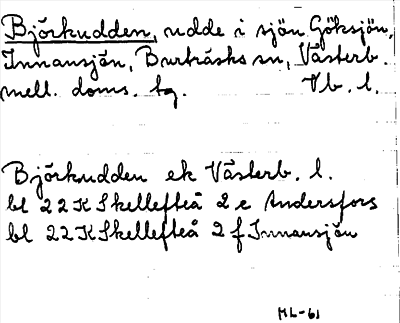 Björkudden, udde i sjön Göksjön,
Innansjön, Burträsks sn, Västerb.
mell. doms. tg. Vb. l.
Björkudden ek Västerb. l.
bl 22K Skellefteå 2e Andersfors
bl 22K Skellefteå 2f Innansjön
ML-61